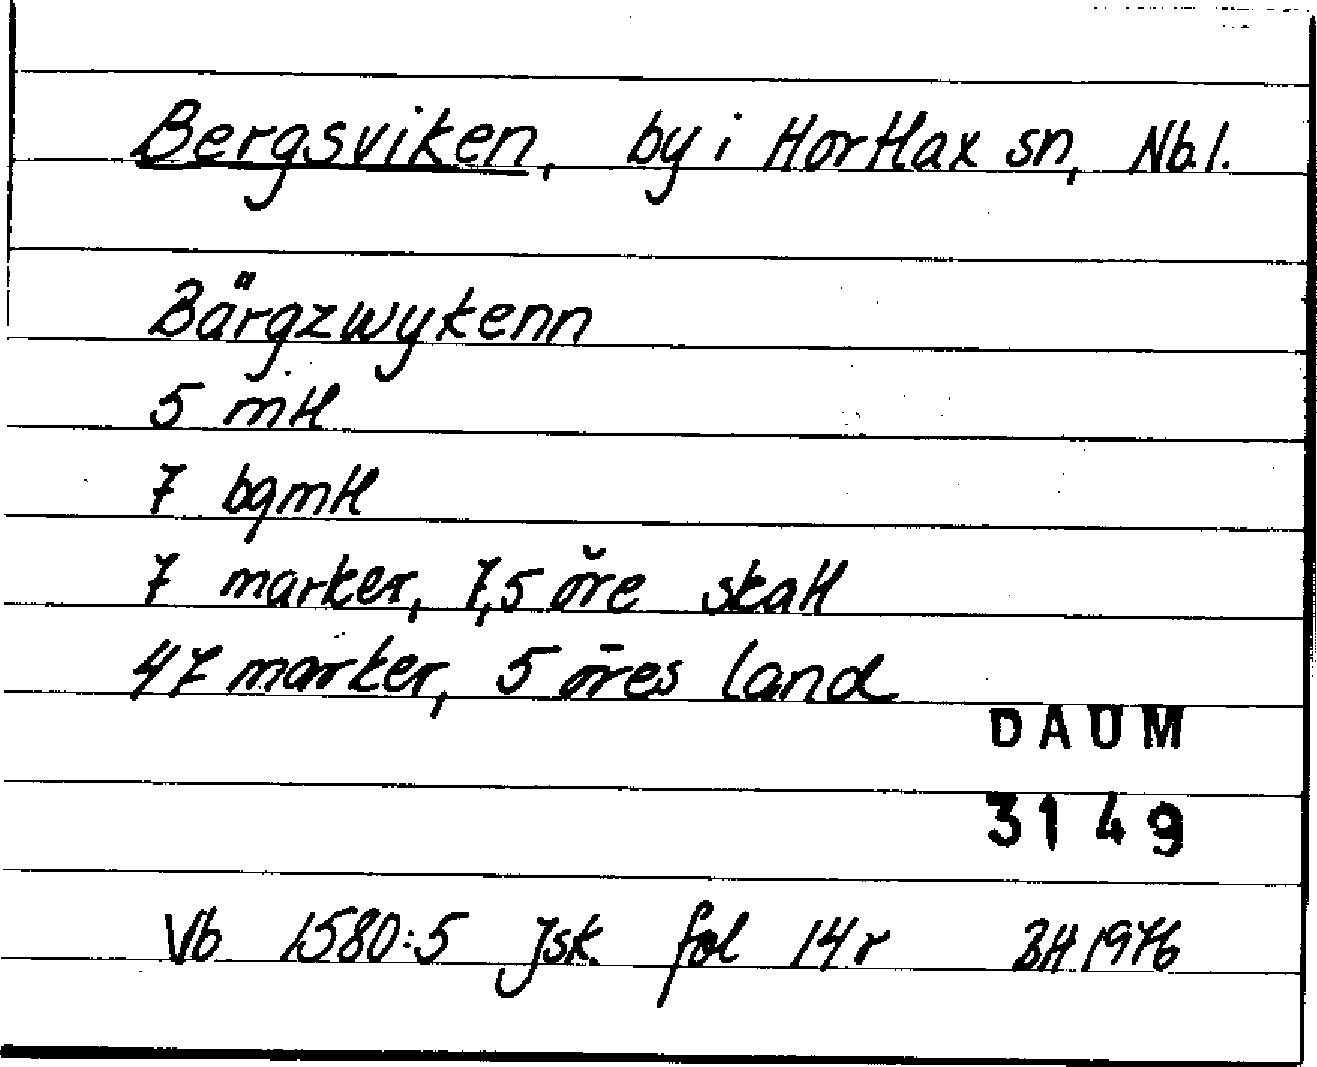 Bergsviken, by i Hortlax sn, Nb.l.
Bärgzwykenn
5 mtl
7 bgmtl
7 marker, 7,5 öre skatt
47 marker, 5 öres land
DAUM
3149
Vb 1580:5 Jsk. fol 14r BH 1976